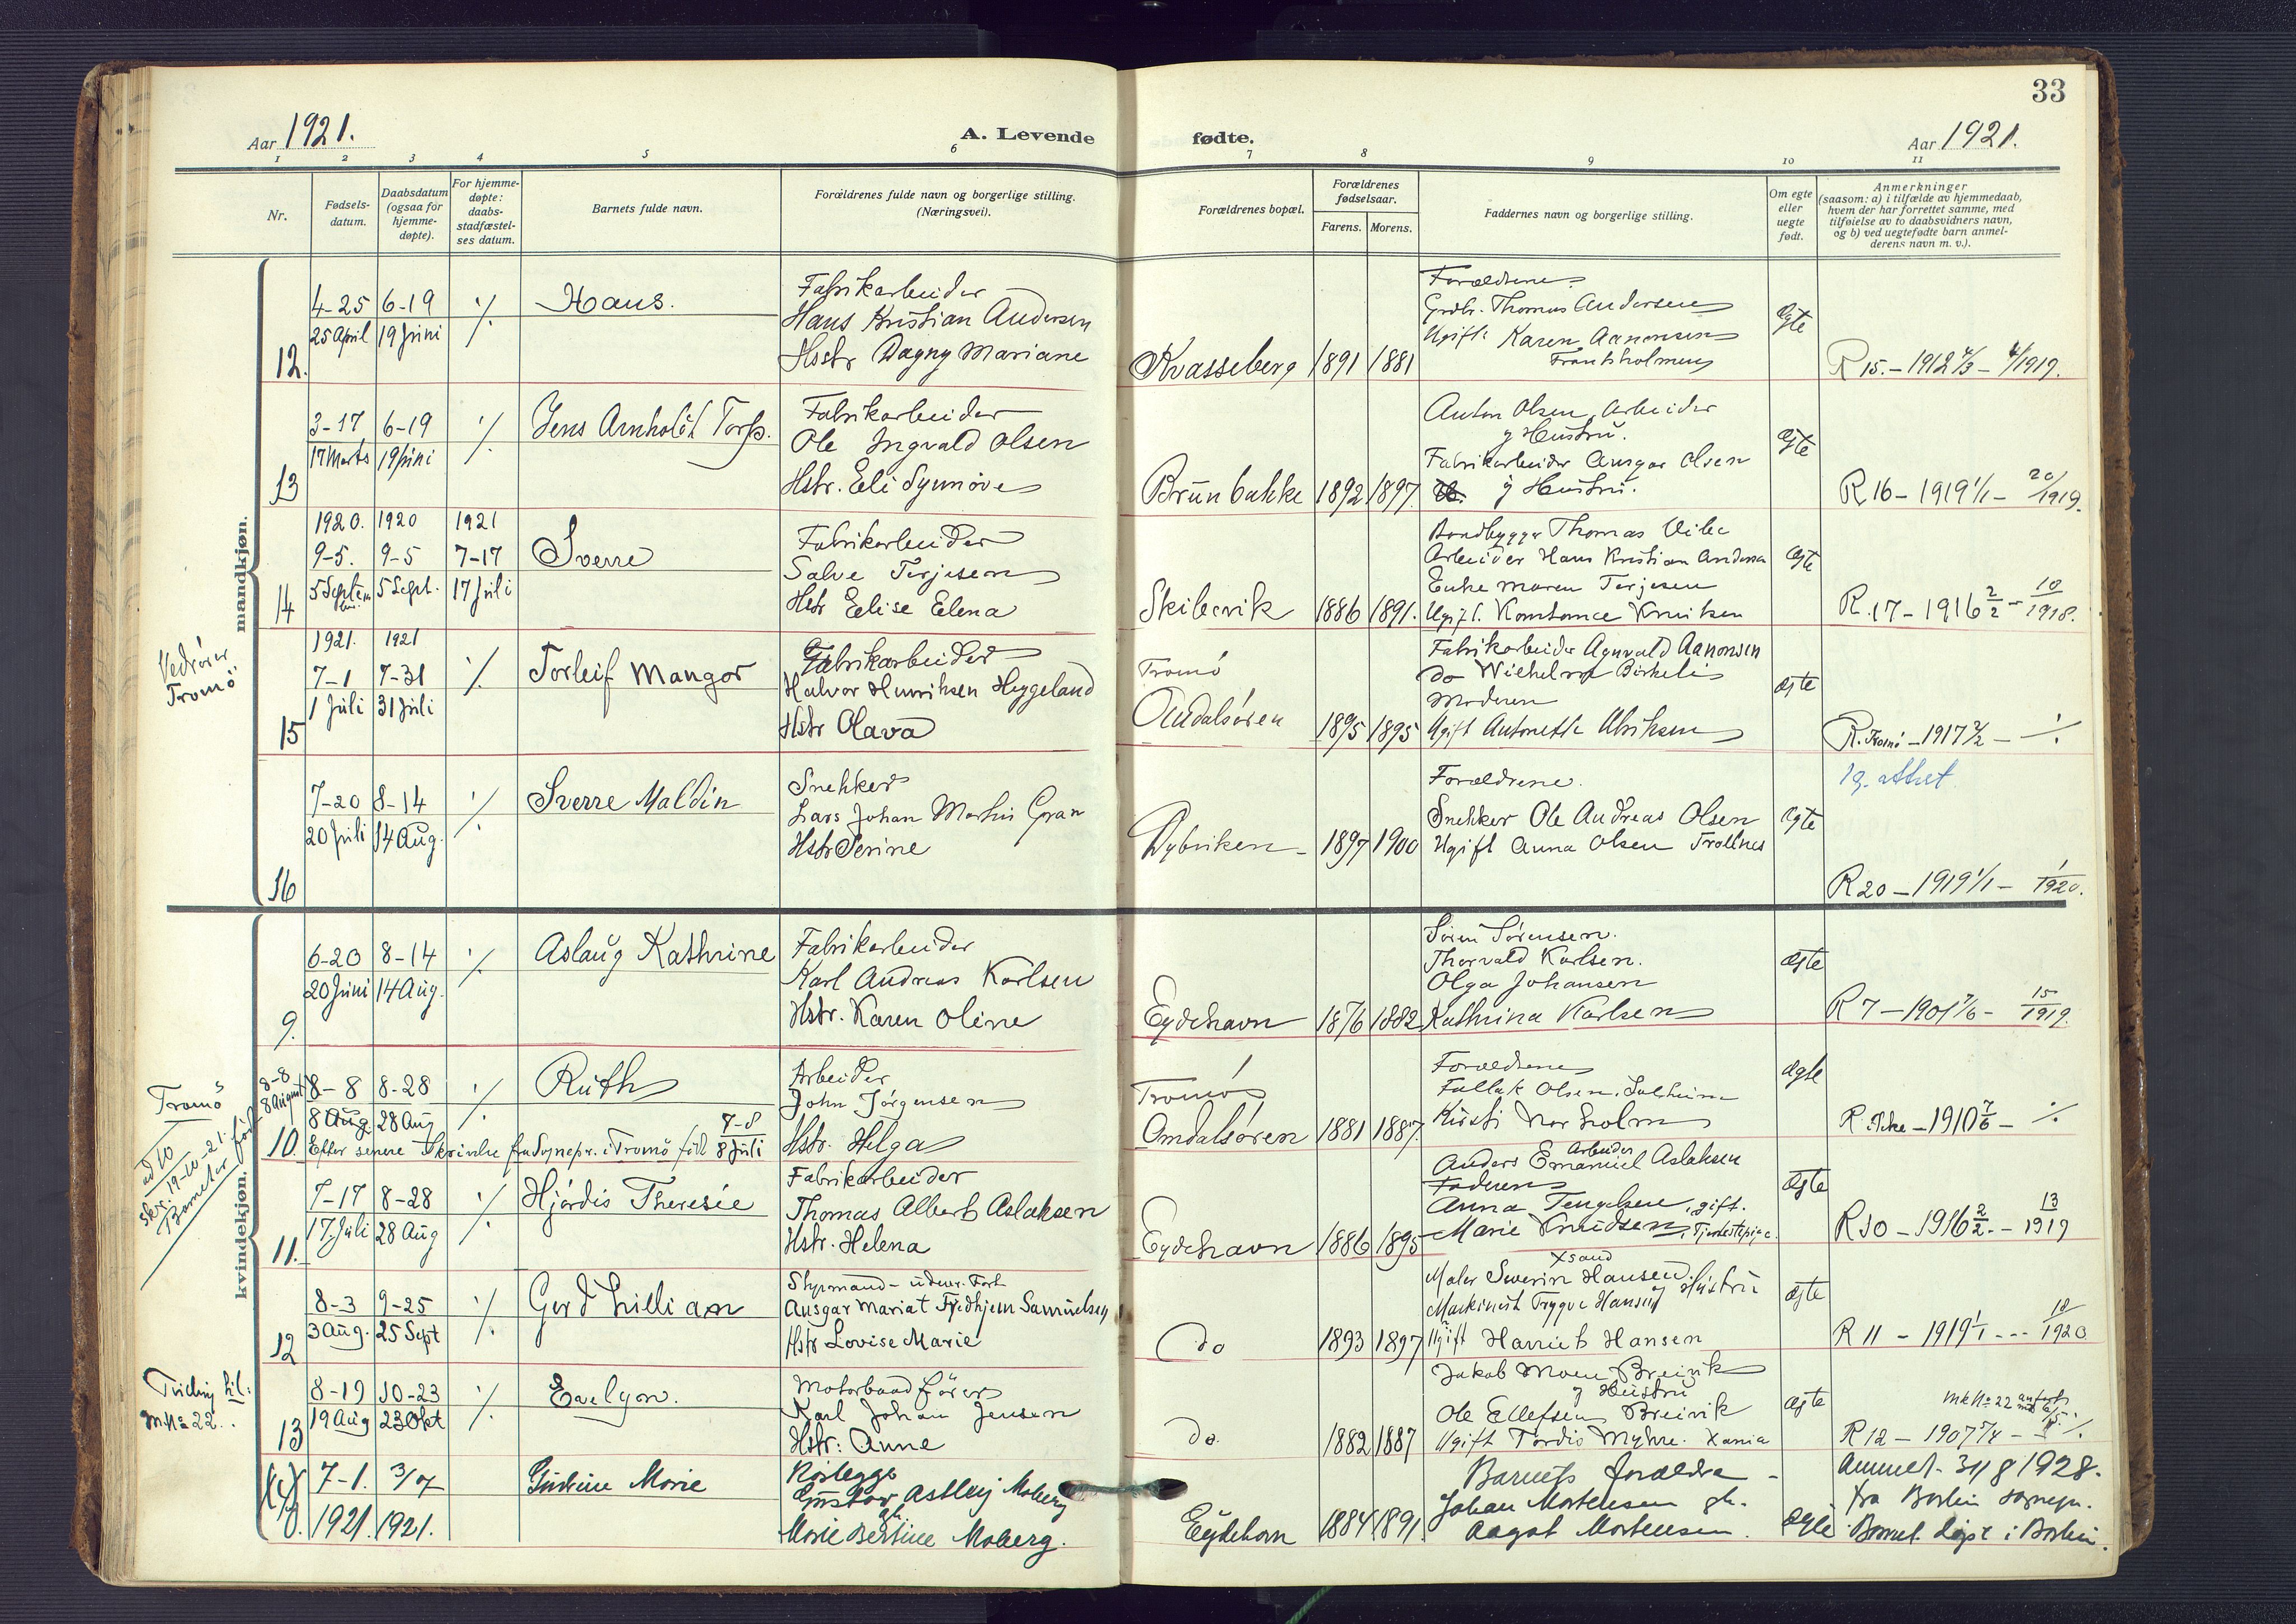 33
Aar 1921.
A. Levende fødte.
Aar 1921.
1 2 3 4 5 6 7 8 9 10 11
Nr.
Fødsels-
datum.
Daabsdatum
(ogsaa for
hjemme-
døpte).
For hjemme-
døpte:
daabs-
stadfæstel-
ses datum.
Barnets fulde navn.
Forældrenes fulde navn og borgerlige stilling.
(Næringsvei).
Forældrenes bopæl.
Forældrenes
fødselsaar.
Farens. Morens.
Faddernes navn og borgerlige stilling.
Om egte
eller
uegte
født.
Anmerkninger
(saasom: a) i tilfælde av hjemmedaab,
hvem der har forrettet samme, med
tilføielse av to daabsvidners navn,
og b) ved uegtefødte barn anmel-
derens navn m. v.).
mandkjøn.
12.
4-25 6-19 ./. Hans.
25 April 19 Juni
Fabrikarbeider
Hans Kristian Andersen
Hstr Dagny Mariane
Kvasseberg 1891 1881
Forældrene
Grdbr. Thomas Andersen
Ugift: Karen Aanonsen
Frantsholmen
Ægte
R 15. - 1912 4/3 - 4/1919.
13
3-17 6-19 ./. Jens Arnholdt Torp.
17 Marts 19 Juni
Fabrikarbeider
Ole Ingvald Olsen
Hstr. Eli Synnøve
Brunbakke 1892 1897
Anton Olsen, Arbeider
og Hustru.
Fabrikarbeider Ansgar Olsen
og Hustru.
Ægte
R 16 - 1919 1/1 - 20/1919.
14
1920. 1920 1921
9-5. 9-5 7-17 Sverre
5 Septem 5 Sept. 17 Juli
Fabrikarbeider
Salve Terjesen
Hstr Elise Elena
Skibervik 1886 1891.
Baadbygger Thomas Vibe
Arbeider Hans Kristian Andersen
Enke Maren Terjesen
Ugift. Konstance Knutsen
Ægte
R. 17 - 1916 2/2 - 10/1918.
Vedrører
Tromö
15
1921. 1921
7-1 7-31 ./. Torleif Mangor
1 Juli 31 Juli
Fabrikarbeider
Halvor Henriksen Heggeland
Hstr Olava
Tromö
Omdalsøren 1895 1895
Fabrikarbeider Agnvald Aanonsen
do Wilhelm Birkeli
Moderen
Ugift Antonette Ulriksen
Ægte
R. Tromö - 1917 2/2 - ./.
16
7-20 8-14 ./. Sverre Maldin
20 Juli 14 Aug.
Snekker
Lars Johan Martin Gran
Hstr Serine
Dybviken - 1897 1900
Forældrene.
Snekker Ole Andreas Olsen
Ugift Anna Olsen Trollnes
Ægte
19. attest
R 20 - 1919 1/1 - 1/1920.
kvindekjøn.
9.
6-20 8-14 ./. Aslaug Kathrine
20 Juni 14 Aug.
Fabrikarbeider
Karl Andreas Karlsen
Hstr. Karen Oline
Eydehavn 1876 1882
Søren Sørensen.
Thorvald Karlsen.
Olga Johansen
Kathrina Karlsen
Ægte
R 7 - 1901 7/6 - 15/1919.
Tromö
ad 10
skr. 19-10-21.
Barnet er født
8-8
8 August
10.
8-8 8-28 ./. Ruth
8 Aug. 28 Aug
7-8
8 Juli
Efter senere Skrivelse fra Sognepr. i Tromö født
Arbeider
John Jørgensen
Hstr. Helga
Tromö
Omdalsøren 1881 1887.
Forældrene
Fallak Olsen, Solheim
Kirsti Norholm
Ægte
R. Ikke - 1910 7/6 - ./.
11.
7-17 8-28 ./. Hjördis Theresie
17. Juli 28 Aug
Fabrikarbeider
Thomas Albert Aslaksen
Hstr. Helena
Eydehavn 1886 1895
Arbeider
Anders Emanuel Aslaksen
Faderen
Anna Tengelsen, gift.
Marie Knudsen, Tjenestepige.
Ægte
R 10 - 1916 2/2 - 13/1919
12
8-3 9-25 ./. Gerd Lillian
3 Aug. 25 Sept
Styrmand - udenr. Fart
Ansgar Mariat Fredhjem Samuelsen
Hstr Lovise Marie
do 1893 1897
Xsand
Maler Severin Hansen
Maskinist Trygve Hansen og Hustru
Ugift Harriet Hansen
Ægte
R 11 - 1919 1/1 --- 10/1920
Tvilling til:
M. No 22.
13
8-19 10-23 ./. Evelyn.
19 Aug 23 Okt
Motorbaadfører
Karl Johan Jensen
Hstr: Anne
do. 1882 1887
Jakob Moen, Breivik
og Hustru
Ole Ellefsen Breivik
Ugift Tordis Myhre. Xania
Ægte
mk No 22
R 12 - 1907 5/4 -
7-1. 3/7 Gudrun Marie
1921. 1921.
Rørlegger
Gustav Astley Moberg
Marie Bertine Moberg.
Eydehavn 1884 1891
Barnets forældre -
Johan Mortensen gh.
Aagot Mortensen.
Ægte
Anmeldt 31/8 1928.
fra Barbu sognepr.
Barnet døpt i Barbu.